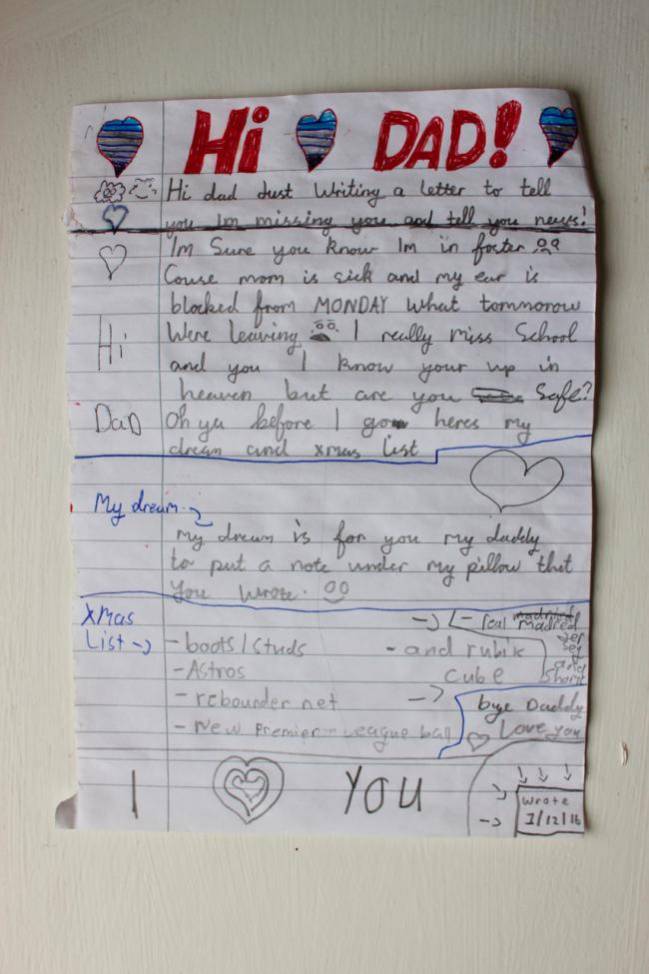 Hi DAD!
Hi dad Just writing a letter to tell
you Im missing you and tell you news!
Im Sure you know Im in foster
Couse mom is sick and my ear is
blocked from MONDAY what tommorow
Hi
Were leaving I really miss School
and you I know your up in
heaven but are you Safe?
DaD
Oh ya before I go heres my
dream and xmas list
My dream
my dream is for you my daddy
to put a note under my pillow that
you wrote.
Xmas
List
- boots/studs
- Astros
- rebounder net
- New Premier-League ball
- and rubik
cube
- real madred
jer
sey
and
Short
bye Daddy
Love you
I YOU
wrote
1/12/16